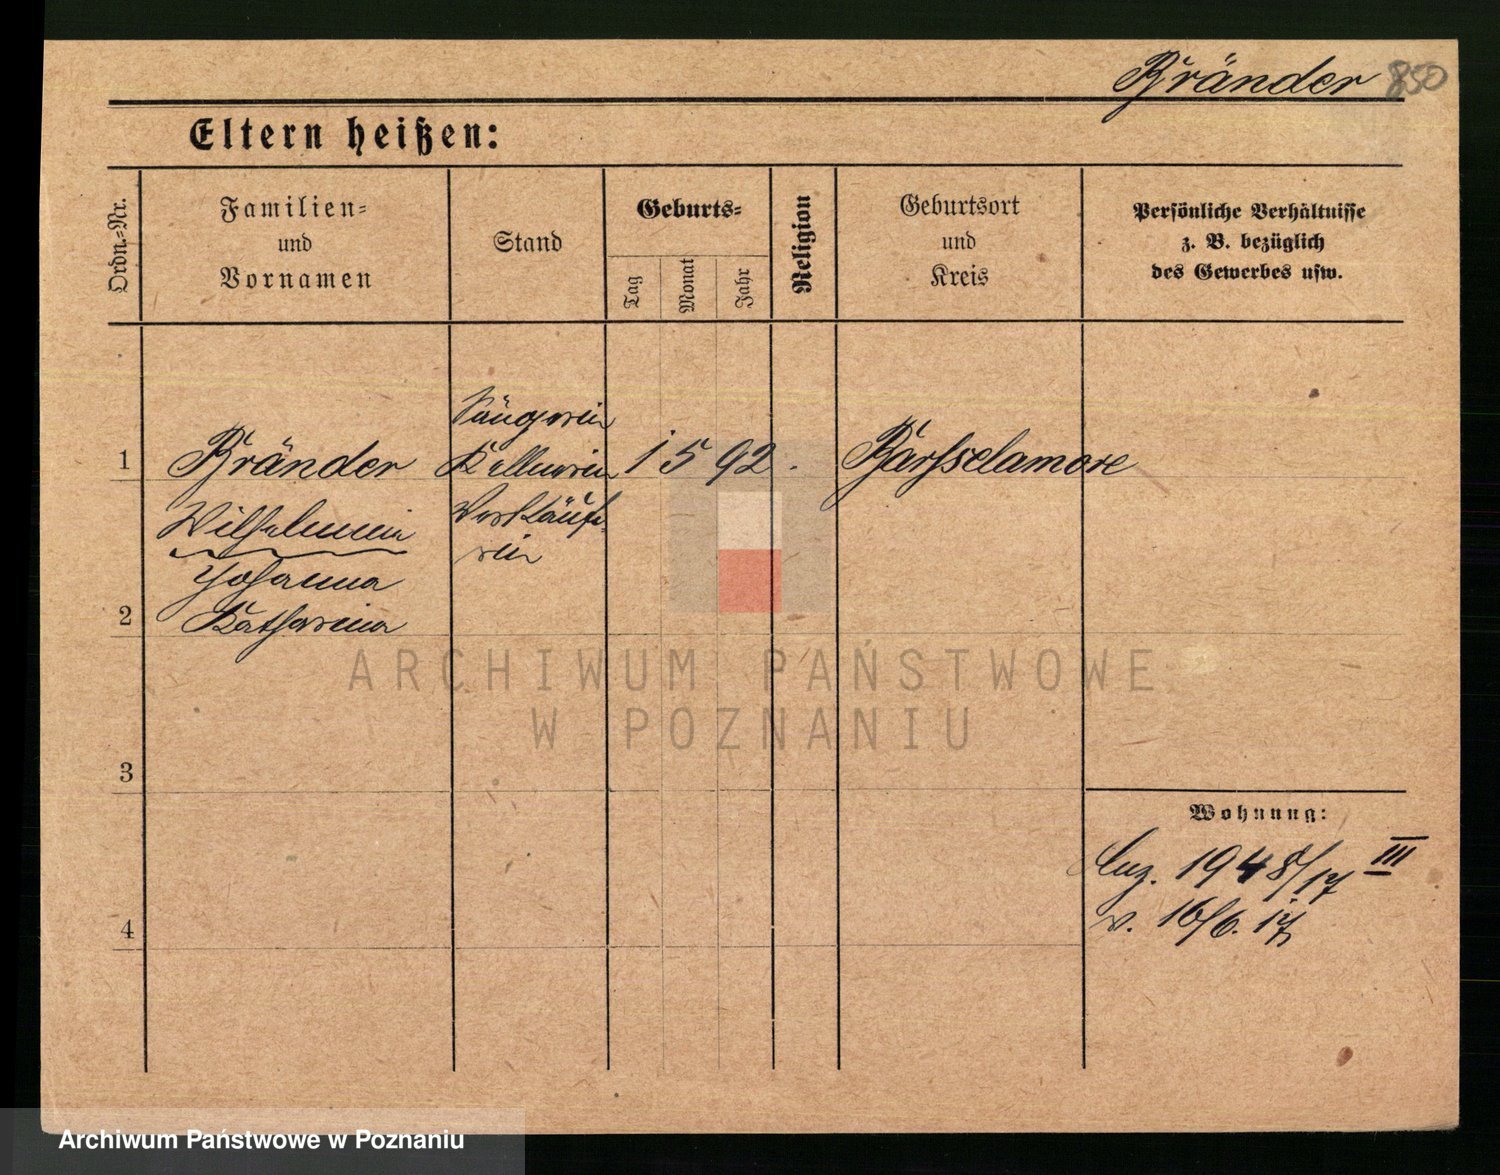 Bränder 850
Eltern heißen:
Ordn.=Nr.
Familien=
und
Vornamen
Stand
Geburts=
Tag
Monat
Jahr
Religion
Geburtsort
und
Kreis
Persönliche Verhältnisse
z. B. bezüglich
des Gewerbes usw.
Sängerin
1 Bränder Kellnerin 1 5 92. Barsselamore
Wilhelmina Verkäufe-
rin
Johanna
2 Katharina
ARCHIWUM PAŃSTWOWE
W POZNANIU
3
Wohnung:
Anz. 1948/17 III
4 v. 16/6. 17
Archiwum Państwowe w Poznaniu